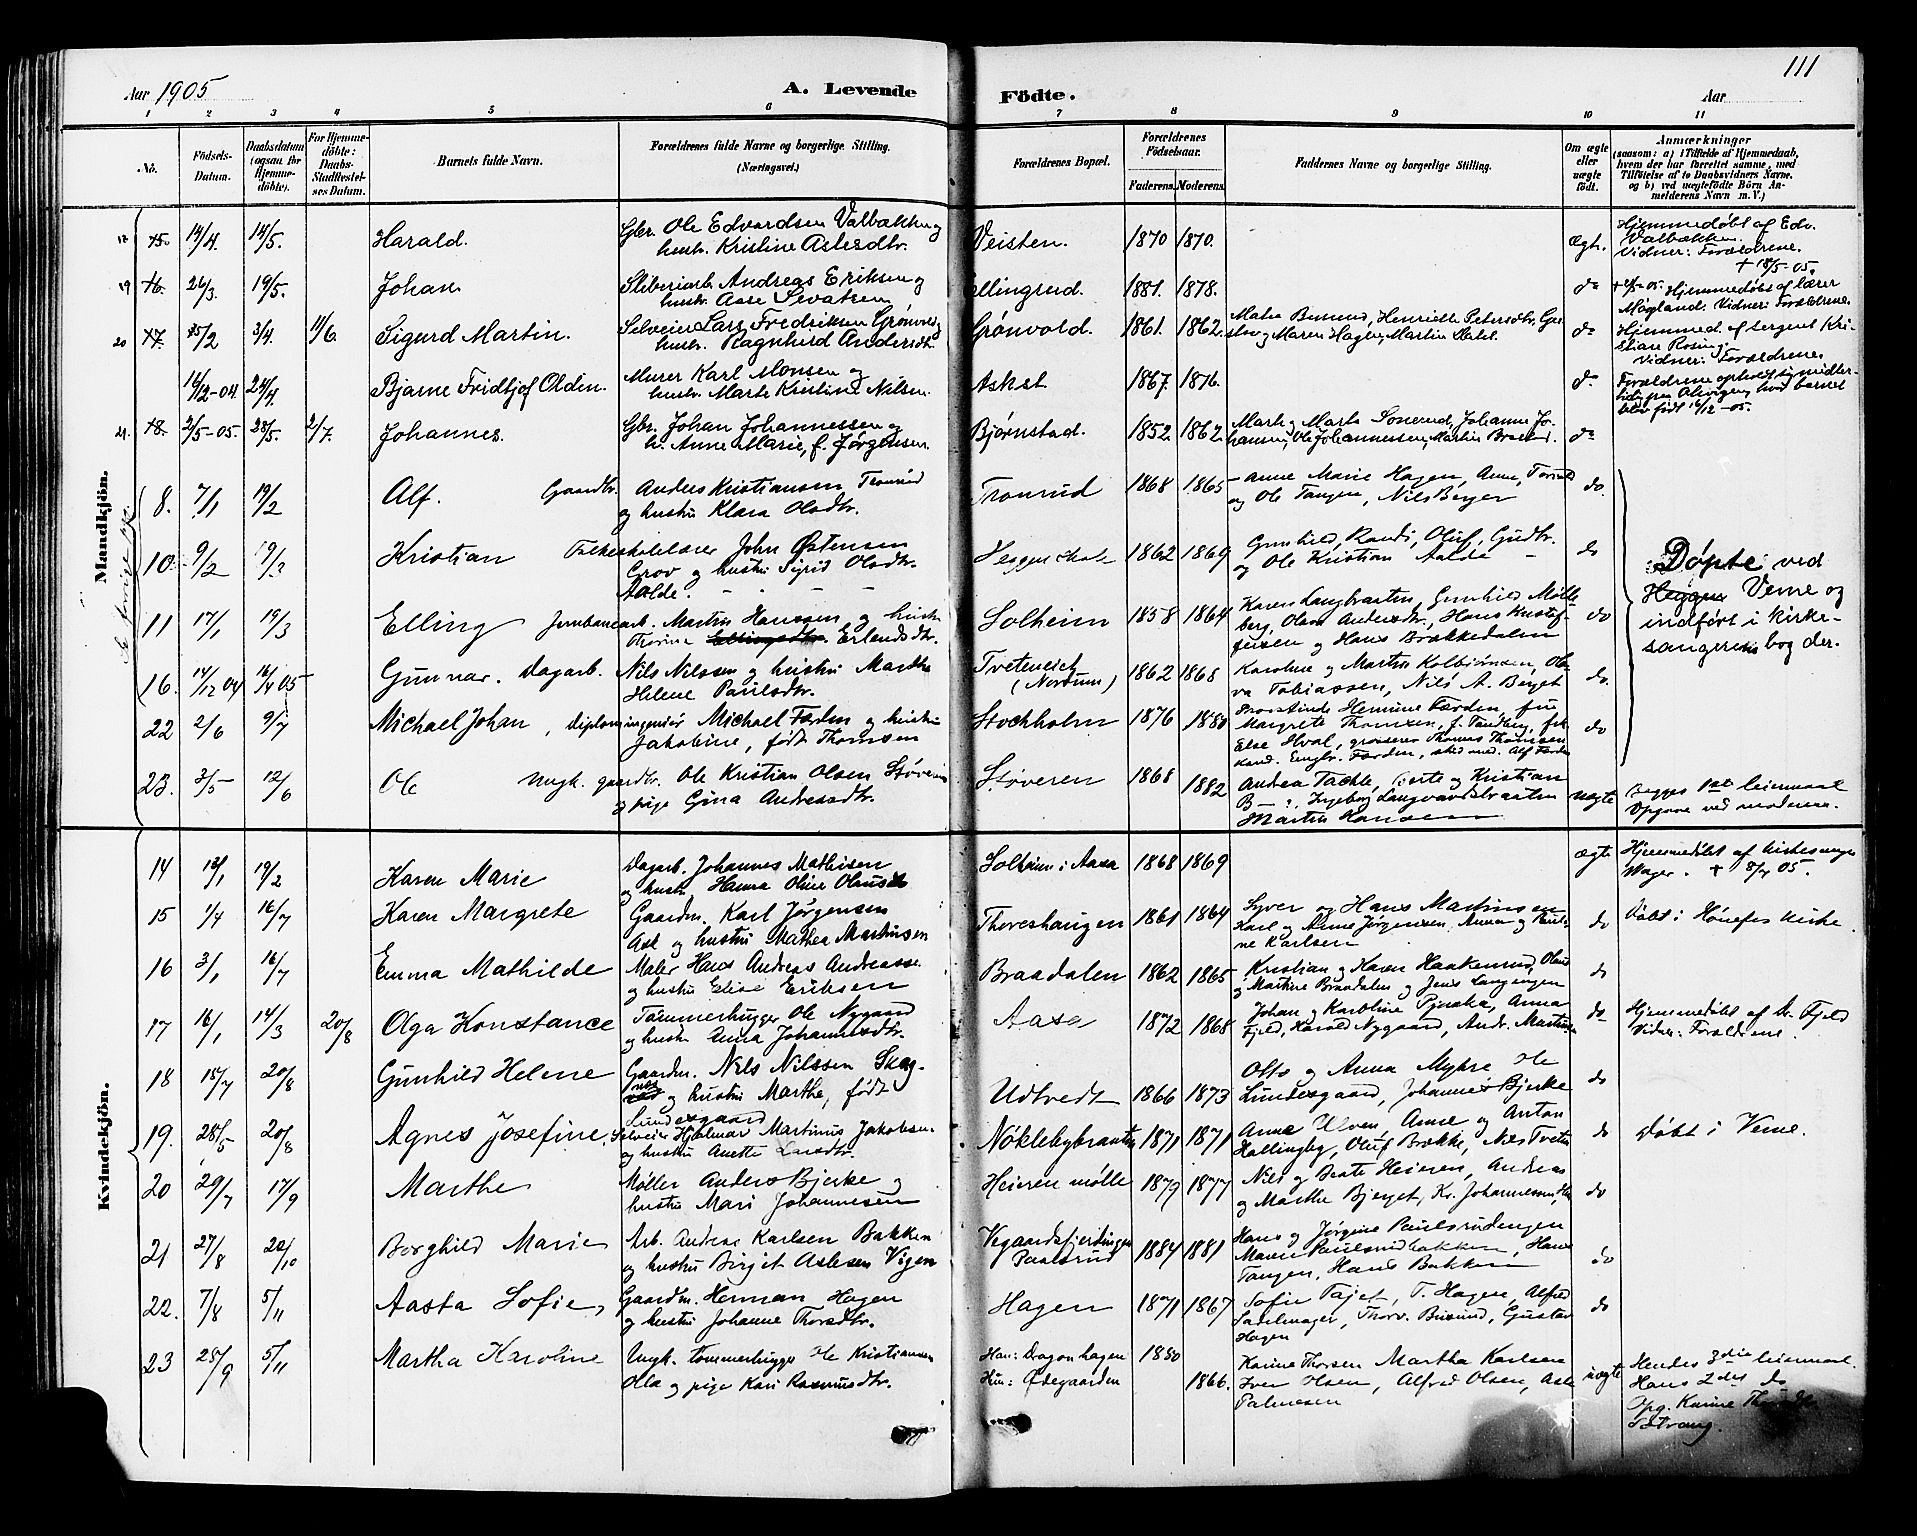 111
Aar 1905
A. Levende
Födte.
Aar
1 2 3 4 5 6 7 8 9 10 11
No.
Födsels-
Datum.
Daabsdatum
(ogsaa for
Hjemme-
döbte).
For Hjemme-
döbte:
Daabs-
Stadfæstel-
ses Datum.
Barnets fulde Navn.
Forældrenes fulde Navne og borgerlige Stilling.
(Næringsvei.)
Forældrenes Bopæl.
Forældrenes
Födselsaar.
Faderens. Moderens.
Faddernes Navne og borgerlige Stilling.
Om ægte
eller
uægte
födt.
Anmærkninger
(saasom: a) i Tilfælde af Hjemmedaab,
hvem der har forrettet samme, med
Tilföielse af to Daabsvidners Navne.
og b) ved uægtefödte Börn An-
melderens Navn m. V.)
Mandkjön.
15. 14/4. 14/5. Harald. Gbr. Ole Edvardsen Valbækken og
hustr. Kristine Aslesdtr. Veisten. 1870 1870. ægt.
Hjemmedøbt af Edv.
Valbækken.
Vidner: Forældrene.
+ 18/5-05.
19 16. 26/3. 19/5. Johan Sliberiarb. Andreas Eriksen og
hustr. Aase Sevatsen Ellingrud. 1881. 1878. do
Hjemmedøbt af lærer
Møgland. Vidner: Forældrene.
20 17. 25/2 3/4. 11/6. Sigurd Martin. Selveier Lars Fredriksen Grønvold og
hustr. Ragnhild Andersdtr. Grønvold. 1861. 1862. do
Hjemmed. af sergent Kri-
stian Rosing.
Vidner: Forældrene.
16/12-04. 24/4. Bjarne Fridtjof Olden. Murer Karl Monsen og
hustr. Marte Kristine Nilsen. Askst. 1867. 1876. do
Forældrene opholdt sig midler-
hvor barnet
blev født 16/12-05.
21. 18. 2/5-05. 28/5. 2/7. Johannes. Gbr. Johan Johannessen og
h. Anne Marie, f. Jørgensen. Bjørnstad. 1852. 1862. do
Ole Johannessen, Martin
8. 7/1 19/2 Alf. Gaardbr. Anders Kristiansen Tronrud
og hustru Klara Olsdtr. Tronrud 1868 1865 Anne Marie Hagen, Anne,
og Ole Tangen, Nils Berger do.
10. 9/2 19/3 Kristian Folkeskolelærer John Østensen
Grov og hustru Sigrid Olsdtr.
Aalde. 1862 1869 Gunhild, Randi, Oluf, Gudbr.
og Ole Kristian Aalde do
11 17/1 19/3 Elling Jernbanearb. Martin Hanssen og hustru
Thorine Ellingsdtr. Erlandsdtr. Solheim 1858 1864 Karen Langbraaten, Gunhild Mølle
berg, Olava Andersdtr., Hans Kristof-
fersen og Hans Brækkedalen do
16. 14/12 04 16/4 05 Gunnar. Dagarb. Nils Nilssen og hustru Marthe
Helene Paulsdtr. Tveteneiet
(Norderum) 1862 1868 Karoline og Martin Kolbjørnsen, Ole
Tobiassen, Nils A. Berget do.
Døpte ved
Heggen Veme og
indført i kirke-
sangerens bog der.
22 2/6 9/7 Michael Johan, diplomingeniør Michael Færden og hustru
Jakobine, født Thomsen Stockholm 1876 1880 Provstinde Hemine Færden, fru
Margrete Thomsen, f. Tandberg, frk.
Else Hval, grosserer Thomas Thomsen
kand. Engbr. Færden, stud. med. Alf Færden do
23. 3/5 12/6 Ole Ungk. gaardbr. Ole Kristian Olsen Støveren
og pige Gina Andreasdtr. Støveren 1868 1882 Andrea Tachle, Berte og Kristian
B— , Ingeborg Langvandsbraaten
Martin Hansen uægte Begges 1ste leiermaal
Opgave ved moderen.
Kvindekjön.
14 13/1 19/2 Karen Marie Dagarb. Johannes Mathisen
og hustr. Hanna Oline Olausdtr. Solheim i Aasa 1868 1869 ægte Hjemmedøbt af kirkesanger
Wager. + 8/7 05.
15 1/4 16/7 Karen Margrete Gaardm. Karl Jørgensen
Ask og hustru Mathea Martinsen Thoreshaugen 1861 1864 Syver og Hans Martinsen
Karl og Anne Jørgensen, Anna og Pauli-
ne Karlsen do Døbt i Hønefos kirke.
16 3/1 16/7 Emma Mathilde Maler Hans Andreas Andreasse.
og hustru Elise Eriksen Braadalen 1862 1865 Kristian og Karen Haakenrud, Olaus
og Martine Braadalen og Jens Langengen do
17 16/1 14/3 20/8 Olga Konstance Tømmerhugger Ole Nygaard
og hustru Anna Johannesdtr. Aasa 1872 1868 Johan og Karoline Pjaaka, Anna
Fjeld, Harald Nygaard, Andr. Martins. do Hjemmedøbt af A. Fjeld
Vidner: Forældrene.
18 15/7 20/8 Gunhild Helene Gaardm. Nils Nilssen Skag-
næs og hustru Marthe, født
Lundesgaard Udtvedt 1866 1873 Otto og Anna Myhre Ole
Lundesgaard, Johannes Bjerke do
19. 28/5 20/8 Agnes Josefine, Selveier Hjalmar Martinus Jakobsen
og hustru Anette Larsdtr. Nøklebybraaten 1871 1871 Anna Ulven, Anne og Anton
Hallingby, Oluf Brække, Nils Tveten do Døbt i Veme.
20 29/7 17/9 Marthe Møller Anders Bjerke og
hustru Mari Johannesen Heieren mølle 1879 1877 Nils og Beate Heieren, Andreas
og Marthe Bjerget, Kr. Johannessen, do
21 27/8 22/10 Borghild Marie Arb. Andreas Karlsen Bakken
og hustru Birgit Aslesen Vigen Vegaardsfjerdingen
Paalsrud 1884 1881 Hans og Jørgine Paulsrudengen
Maren Paulsrudbakken, Hans
Tangen, Hans Bakken do
22. 7/8 5/11 Aasta Sofie, Gaardm. Herman Hagen
og hustru Johanne Thorsdtr. Hagen 1871 1867 Sofie Tajet, T. Hagen, Alfred
Sadelmager, Thorv. Busund, Gustav
Hagen do
23 25/9 5/11 Martha Karoline Ungk. tømmerhugger Ole Kristiansen
og pige Kari Rasmusdtr. Han: Dragonhagen
Hun: Ødegaarden 1880 1866. Karine Thorsen Martha Karlsen
Iver Olsen, Alfred Olsen, Asle
Palmesen uægte Hendes 3die leiermaal.
Hans 2det do
Opg. Karine